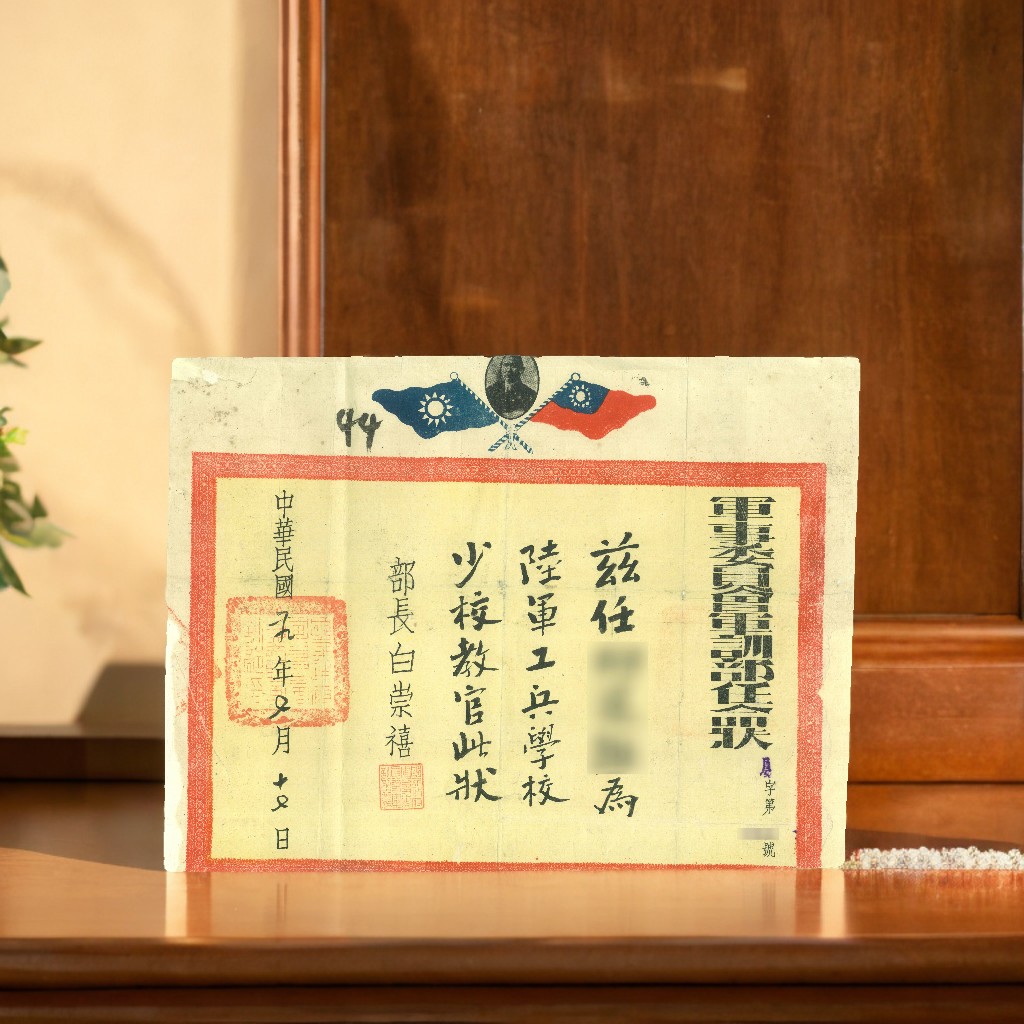 44
軍事委員會軍訓部任命狀
字第
號
茲任
為
陸軍工兵學校
少校教官此狀
部長白崇禧
中華民國廿九年 月十 日